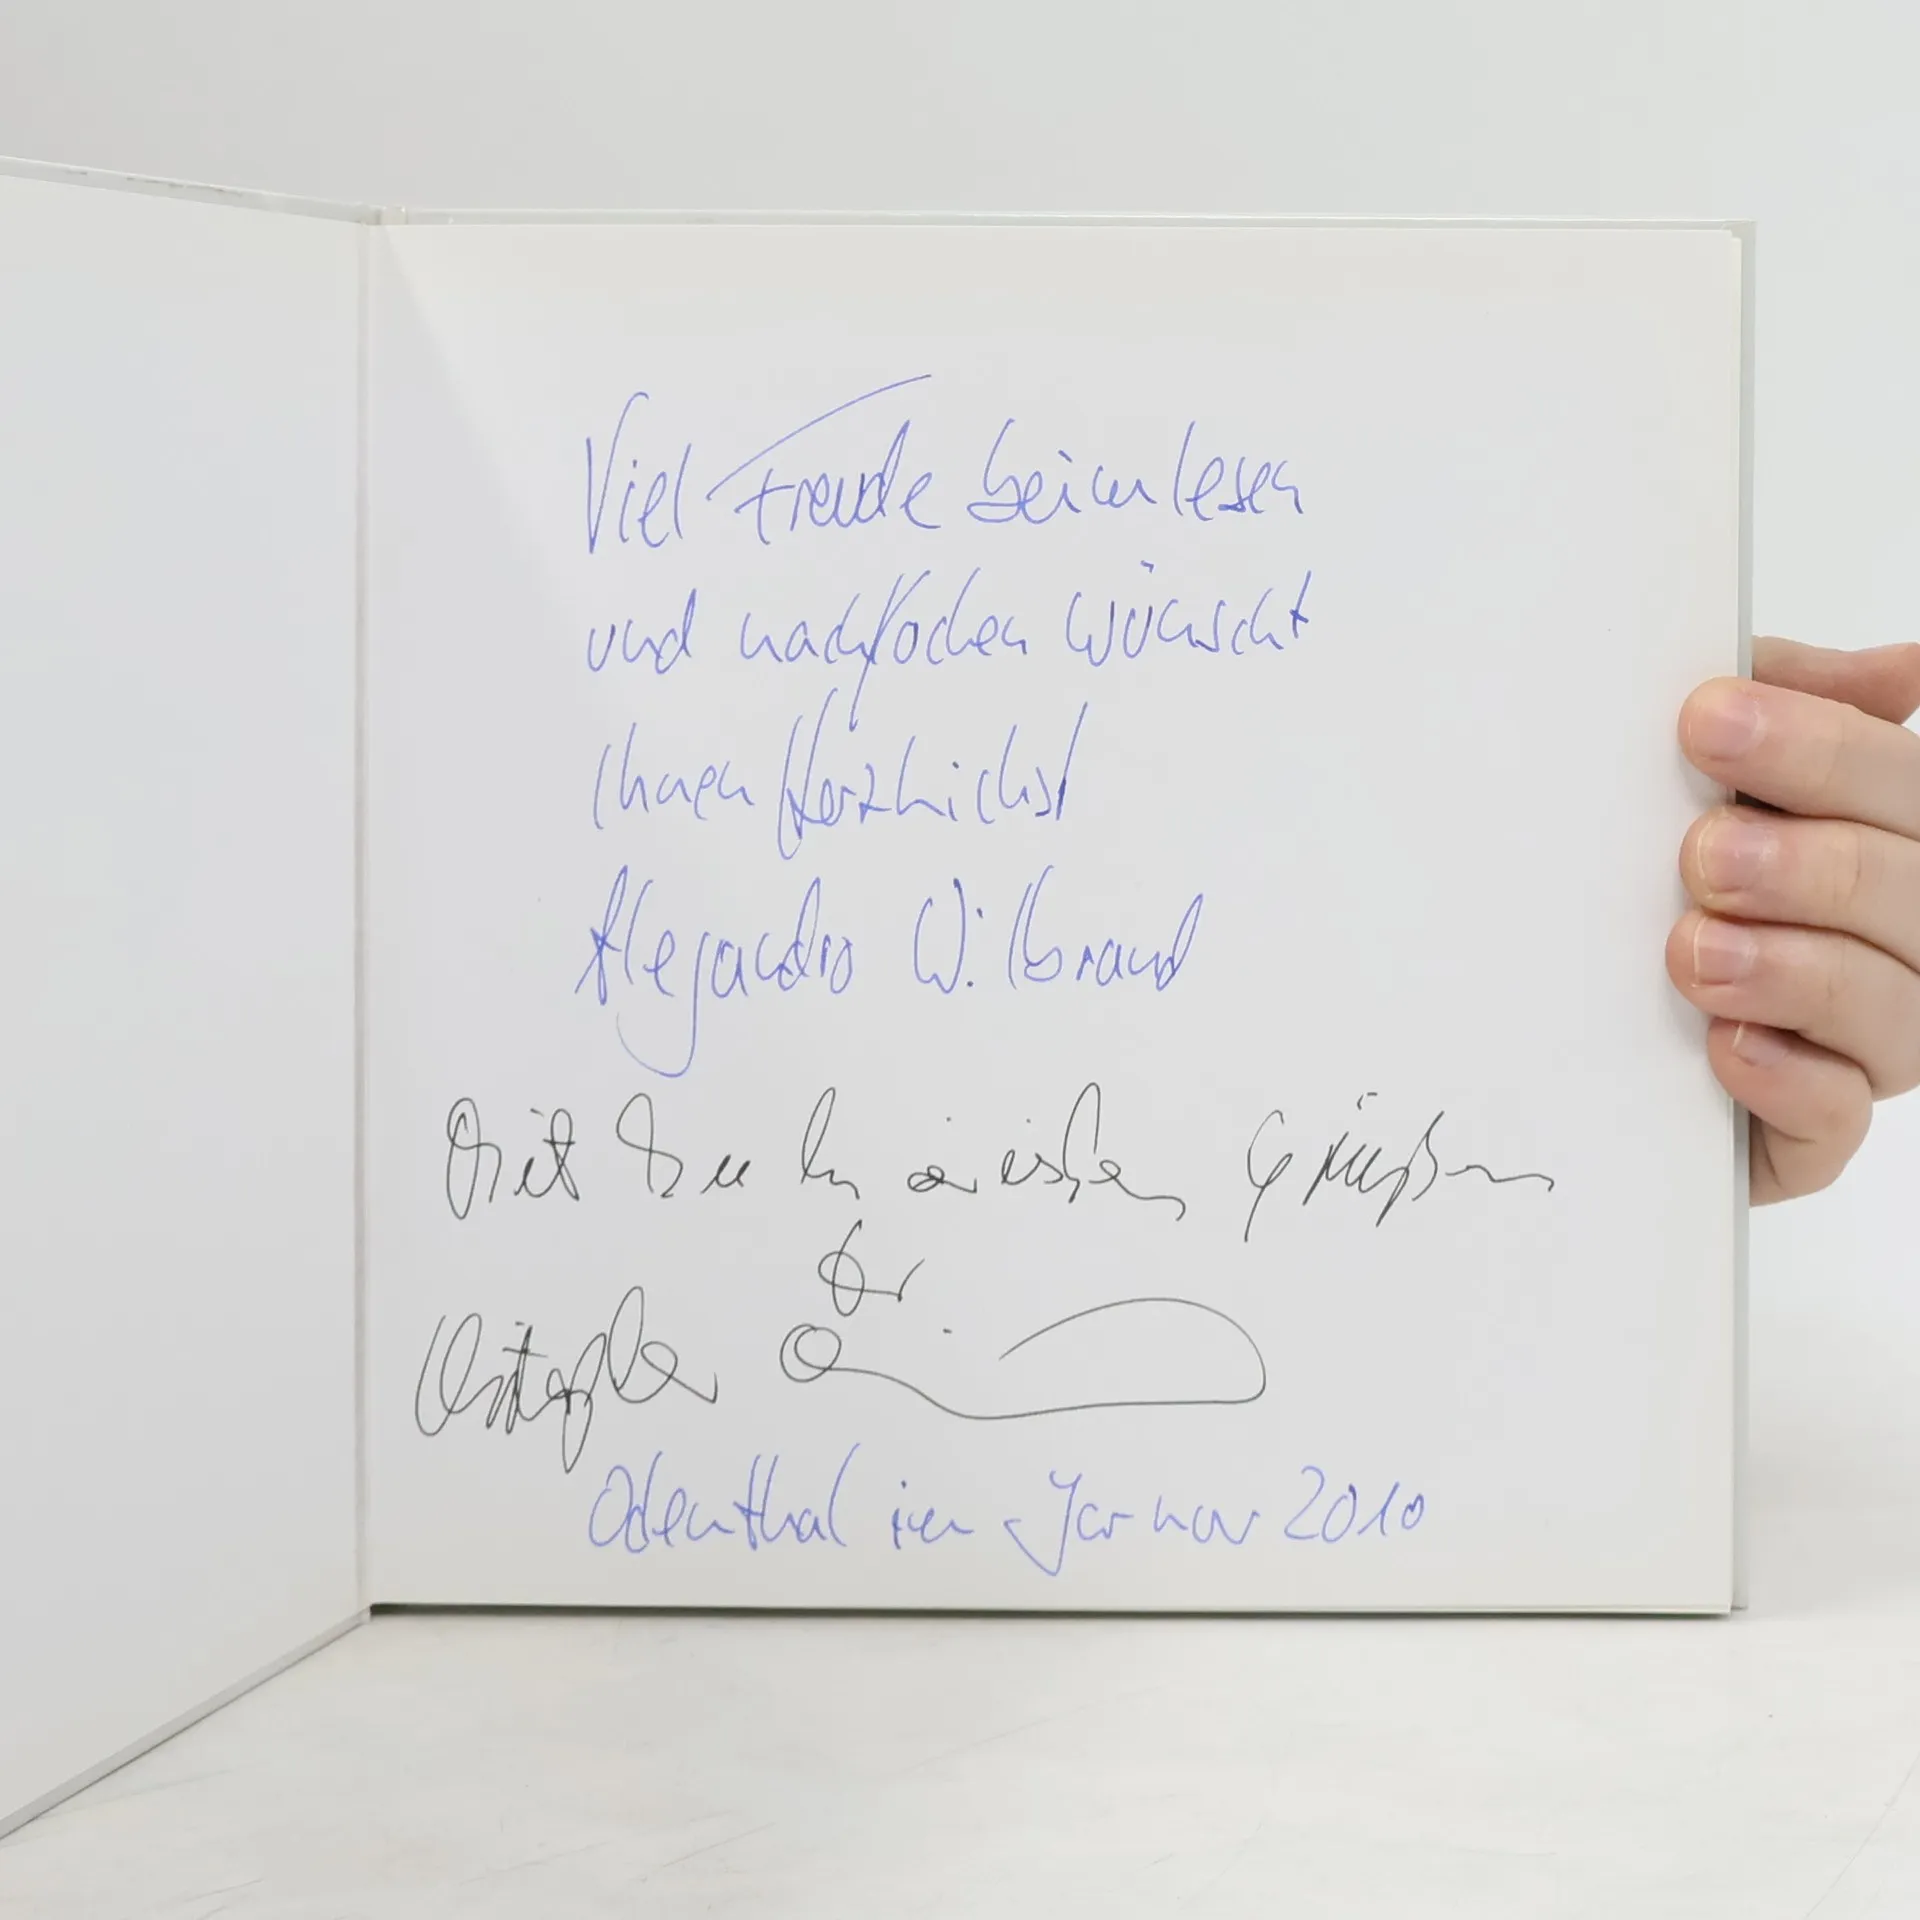 Viel Freude beim lesen
und nachkochen wünscht
Ihnen Herzlichst
Alejandro Wilbrand
Mit kulinarischen Grüßen
Ihr
Christopher
Odenthal im Januar 2010